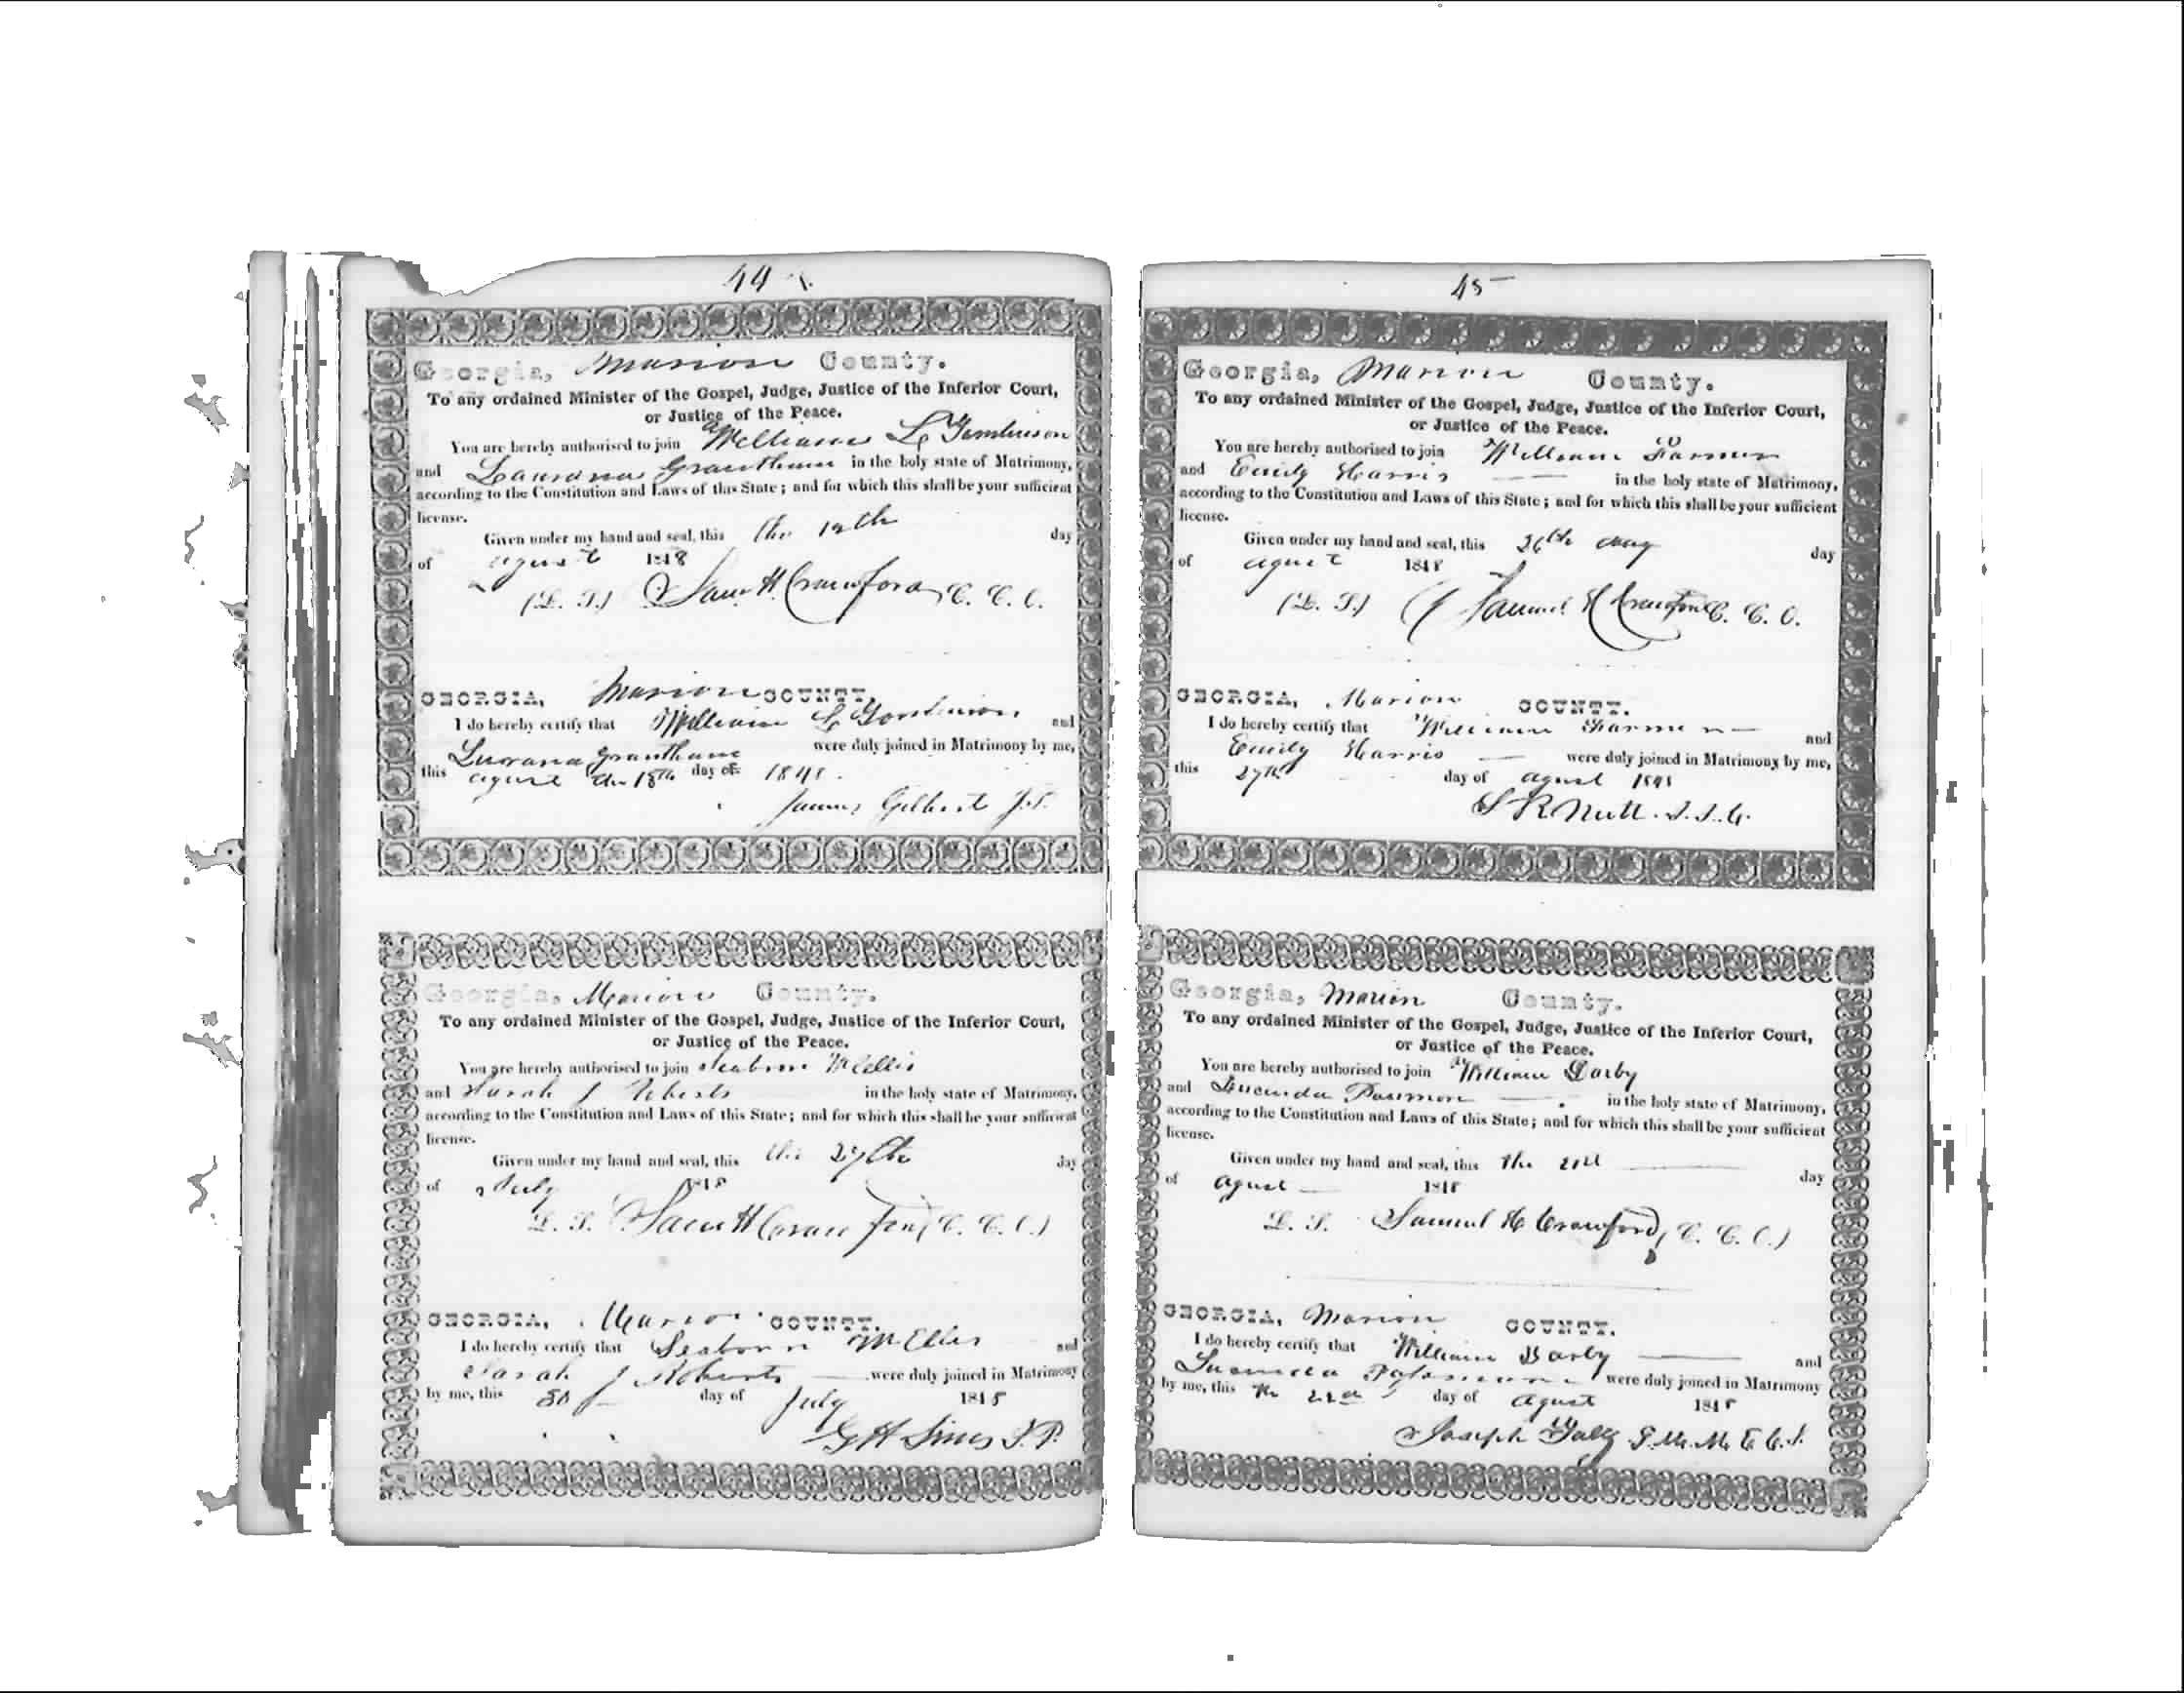 44
Georgia, Marion County.
To any ordained Minister of the Gospel, Judge, Justice of the Inferior Court,
or Justice of the Peace.
You are hereby authorised to join William L Tomlinson
and Laurana Grantham in the holy state of Matrimony,
according to the Constitution and Laws of this State; and for which this shall be your sufficient
license.
Given under my hand and seal, this the 12th day
of agust 1848
(L. S.) Sam H Crawford, C. C. O.
GEORGIA, Marion COUNTY.
I do hereby certify that William L Tomlinson and
Luorana Grantham were duly joined in Matrimony by me,
this agust the 18th day of 1848.
James Gilbert J.P.
Georgia, Marion County.
To any ordained Minister of the Gospel, Judge, Justice of the Inferior Court,
or Justice of the Peace.
You are hereby authorised to join Seaborn McEllis
and Sarah J Roberts in the holy state of Matrimony,
according to the Constitution and Laws of this State; and for which this shall be your sufficient
license.
Given under my hand and seal, this the 27th day
of July 1848
L. S. Sam H Crawford, C. C. O.)
GEORGIA, Marion COUNTY.
I do hereby certify that Seaborn McEllis and
Sarah J Roberts were duly joined in Matrimony
by me, this 30 day of July 1848
G H Sims J. P.
45
Georgia, Marion County.
To any ordained Minister of the Gospel, Judge, Justice of the Inferior Court,
or Justice of the Peace.
You are hereby authorised to join William Farmer
and Emily Harris in the holy state of Matrimony,
according to the Constitution and Laws of this State; and for which this shall be your sufficient
license.
Given under my hand and seal, this 26th day
of agust 1848
(L. S.) Samuel H Crawford C. C. O.
GEORGIA, Marion COUNTY.
I do hereby certify that William Farmer and
Emily Harris were duly joined in Matrimony by me,
this 27th day of agust 1848
S R Nutt. J. I. C.
Georgia, Marion County.
To any ordained Minister of the Gospel, Judge, Justice of the Inferior Court,
or Justice of the Peace.
You are hereby authorised to join William Darby
and Lucinda in the holy state of Matrimony,
according to the Constitution and Laws of this State; and for which this shall be your sufficient
license.
Given under my hand and seal, this the day
of agust 1848
L. S. Samuel H Crawford, C. C. O.)
GEORGIA, Marion COUNTY.
I do hereby certify that William Darby and
Lucinda were duly joined in Matrimony
by me, this the 22nd day of agust 1848
Joseph M. E. C. S.